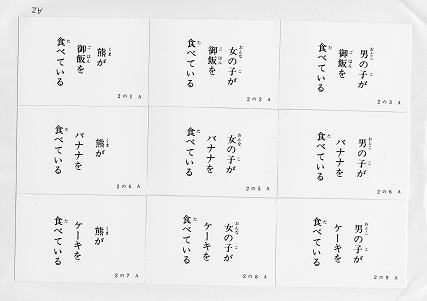 A2
熊が
御飯を
食べている
2の1 A
女の子が
御飯を
食べている
2の2 A
男の子が
御飯を
食べている
2の3 A
熊が
バナナを
食べている
2の4 A
女の子が
バナナを
食べている
2の5 A
男の子が
バナナを
食べている
2の6 A
熊が
ケーキを
食べている
2の7 A
女の子が
ケーキを
食べている
2の8 A
男の子が
ケーキを
食べている
2の9 A